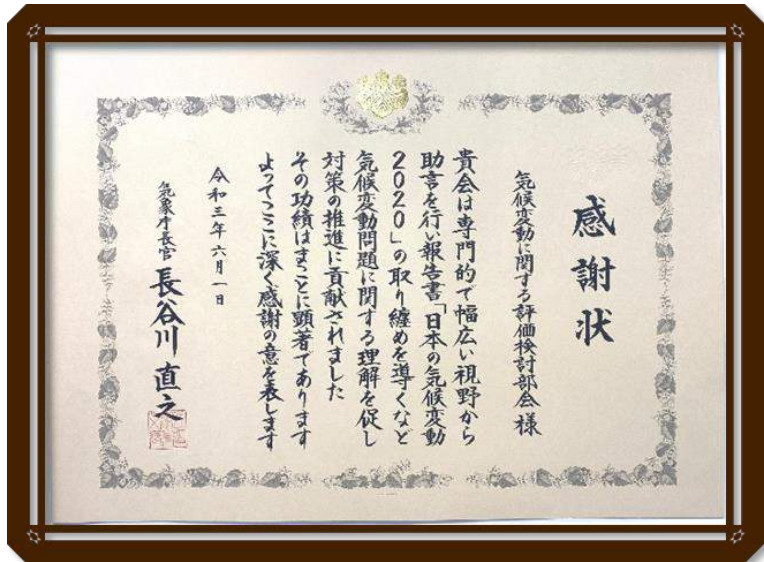 感謝状
気候変動に関する評価検討部会 様
貴会は専門的で幅広い視野から
助言を行い報告書「日本の気候変動
2020」の取り纏めを導くなど
気候変動問題に関する理解を促し
対策の推進に貢献されました
その功績はまことに顕著であります
よってここに深く感謝の意を表します
令和三年六月一日
気象庁長官 長谷川直之